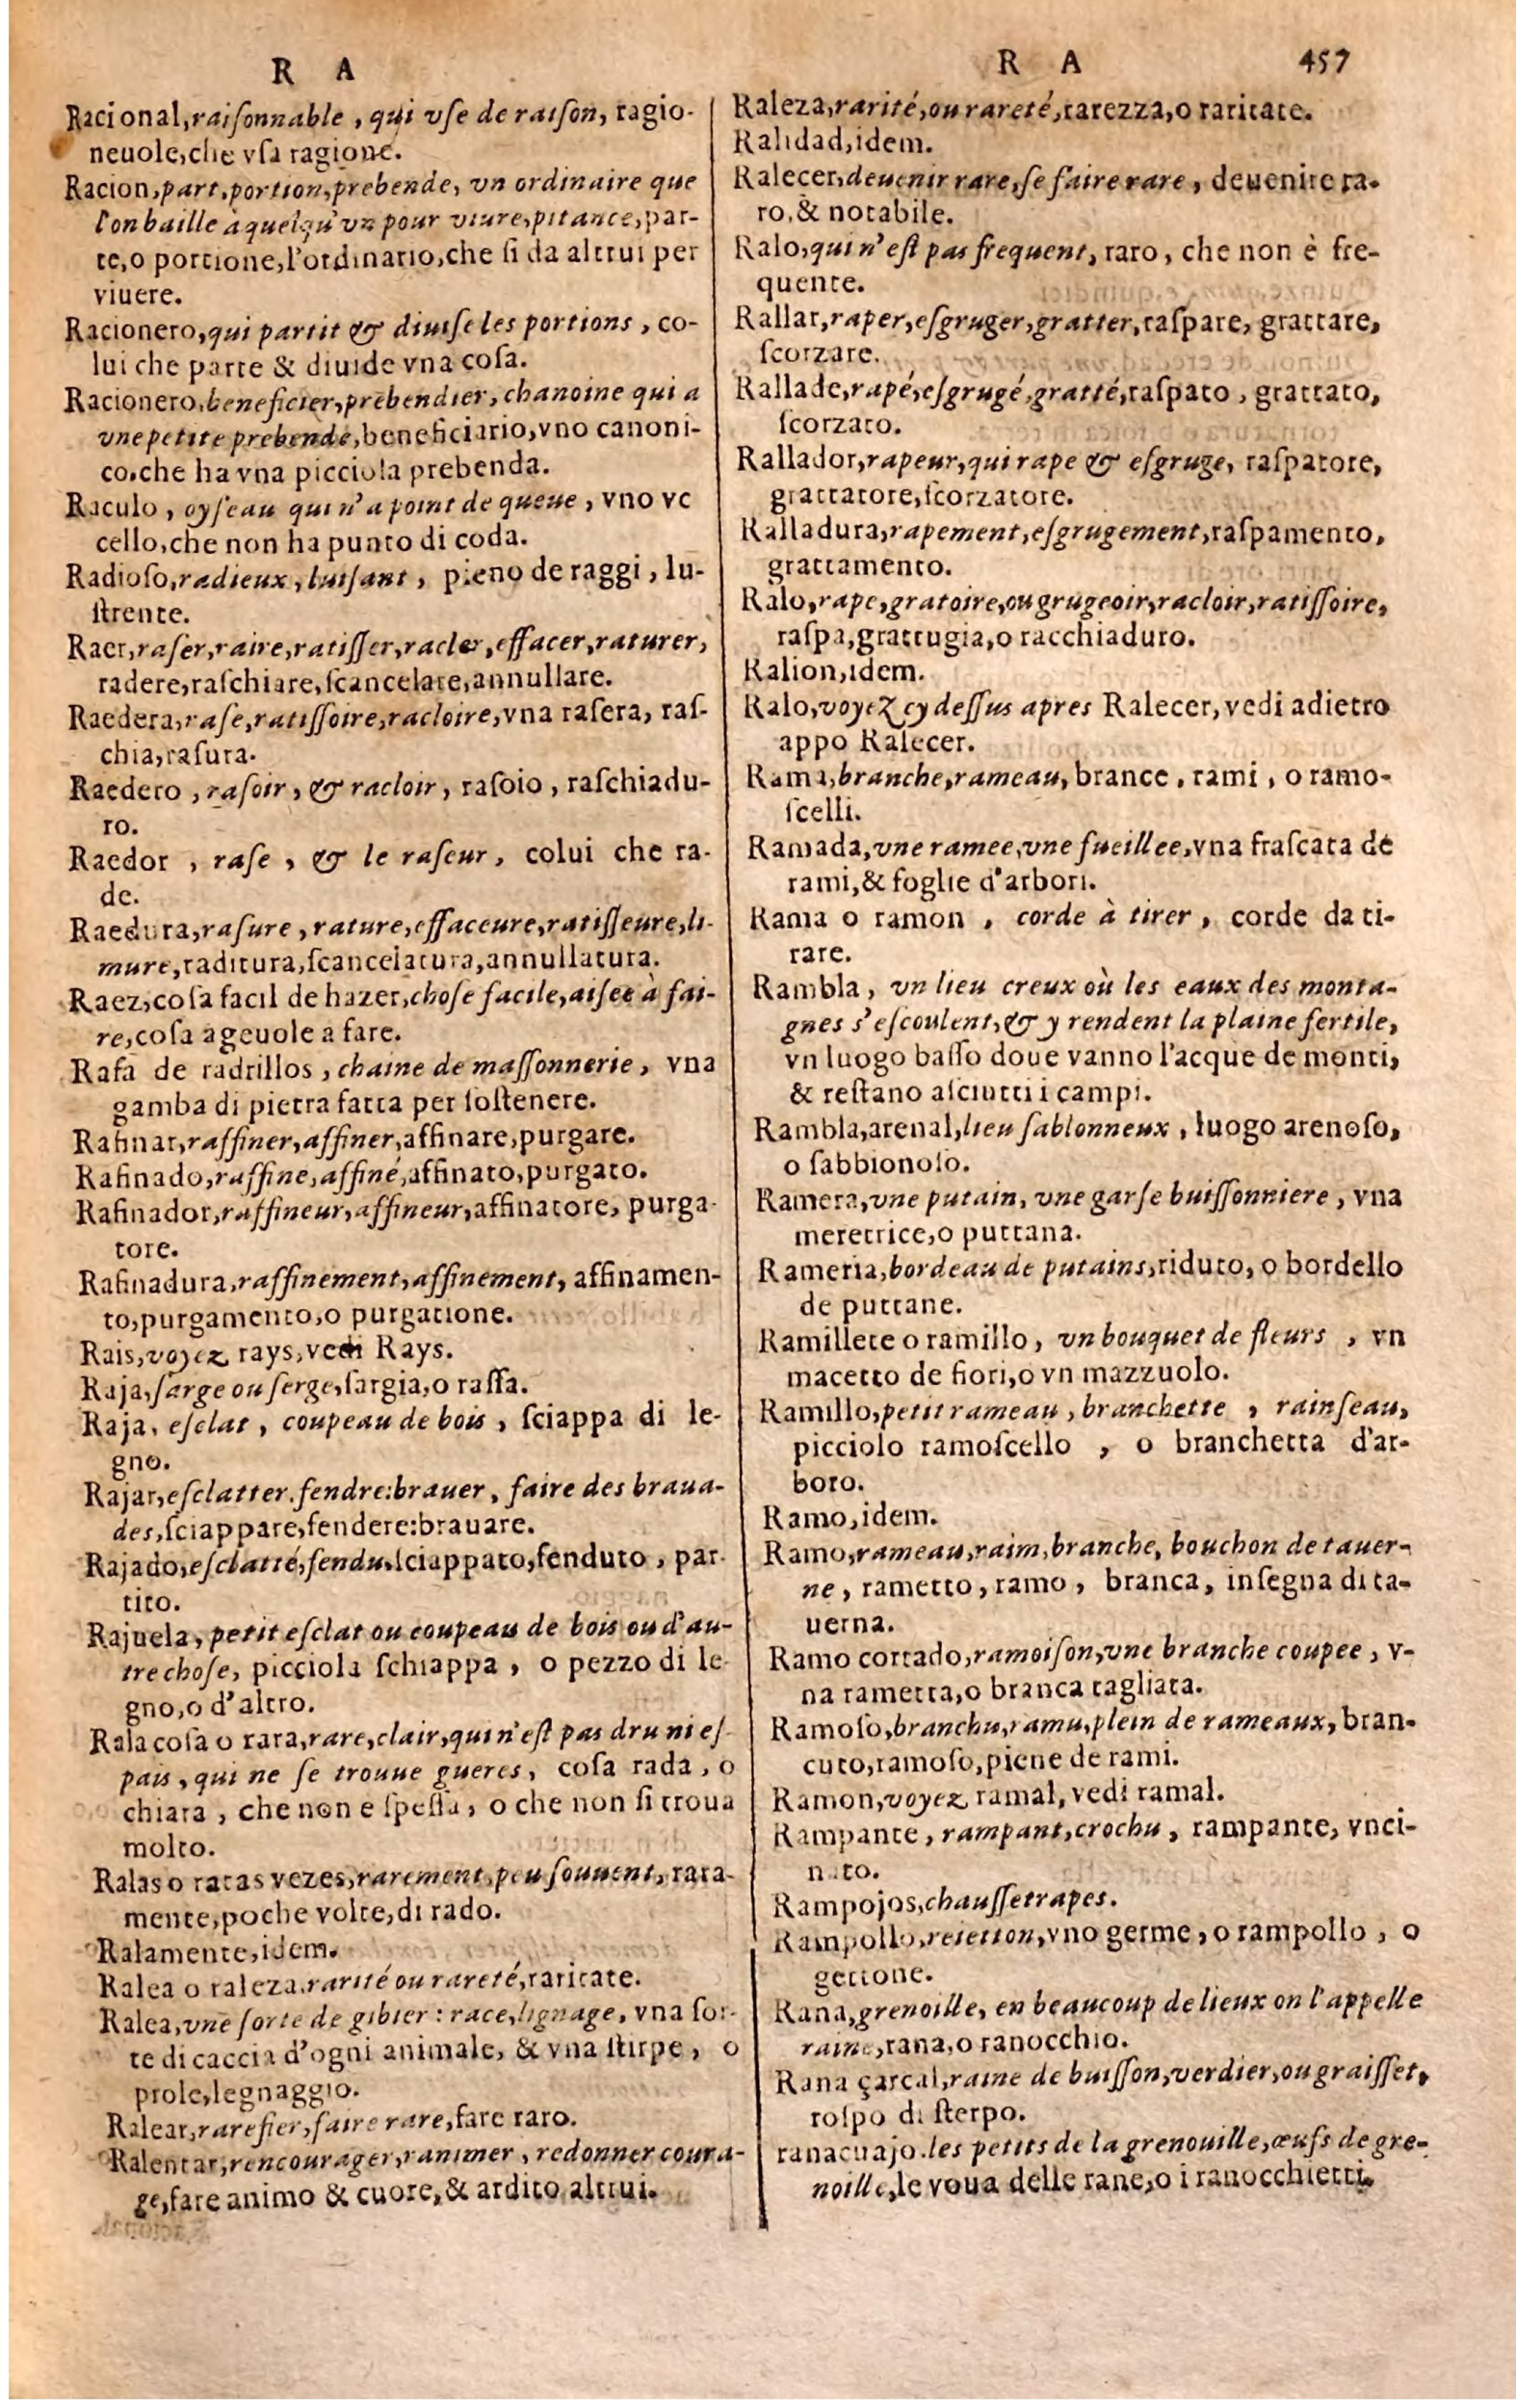 R A
Racional,raiſonnable, qui vſe de raiſon, ragio-
neuole,che vſa ragione.
Racion,part,portion,prebende, vn ordinaire que
l'on baille à quelqu'vn pour viure,pitance,par-
te,o portione,l'ordinario,che ſi da altrui per
viuere.
Racionero,qui partit & diuiſe les portions, co-
lui che parte & diuide vna coſa.
Racionero,beneficier,prebendier, chanoine qui a
vne petite prebende,beneficiario,vno canoni-
co,che ha vna picciola prebenda.
Raculo, oyſeau qui n'a point de queue, vno vc
cello,che non ha punto di coda.
Radioſo,radieux, luiſant, pieno de raggi, lu-
ſtrente.
Raer,raſer,raire,ratiſſer,racler,effacer,raturer,
radere,raſchiare,ſcancelare,annullare.
Raedera,raſe,ratiſſoire,racloire,vna raſera, raſ-
chia,raſura.
Raedero, raſoir, & racloir, raſoio, raſchiadu-
ro.
Raedor, raſe, & le raſeur, colui che ra-
de.
Raedura,raſure, rature,effaceure,ratiſſeure,li-
mure,raditura,ſcancelatura,annullatura.
Raez,coſa facil de hazer,choſe facile,aiſee à fai-
re,coſa ageuole a fare.
Rafa de radrillos, chaine de maſſonnerie, vna
gamba di pietra fatta per ſoſtenere.
Rafinar,raffiner,affiner,affinare,purgare.
Rafinado,raffine,affiné,affinato,purgato.
Rafinador,raffineur,affineur,affinatore, purga-
tore.
Rafinadura,raffinement,affinement, affinamen-
to,purgamento,o purgatione.
Rais,voyez rays,vedi Rays.
Raja,ſarge ou ſerge,ſargia,o raſſa.
Raja, eſclat, coupeau de bois, ſciappa di le-
gno.
Rajar,eſclatter,fendre:brauer, faire des braua-
des,ſciappare,fendere:brauare.
Rajado,eſclatté,fendu,ſciappato,fenduto, par-
tito.
Rajuela, petit eſclat ou coupeau de bois ou d'au-
tre choſe, picciola ſchiappa, o pezzo di le-
gno,o d'altro.
Rala coſa o rara,rare,clair,qui n'eſt pas dru ni eſ-
pais, qui ne ſe trouue gueres, coſa rada, o
chiara, che non e ſpeſſa, o che non ſi troua
molto.
Ralas o raras vezes,rarement,peu ſouuent, rara-
mente,poche volte,di rado.
Ralamente,idem.
Ralea o raleza,rarité ou rareté,raritate.
Ralea,vne ſorte de gibier: race,lignage, vna ſor-
te di caccia d'ogni animale, & vna ſtirpe, o
prole,legnaggio.
Ralear,rarefier,faire rare,fare raro.
Ralentar,rencourager,ranimer, redonner coura-
ge,fare animo & cuore,& ardito altrui.
R A 457
Raleza,rarité,ou rareté,rarezza,o raritate.
Ralidad,idem.
Ralecer,deuenir rare,ſe faire rare, deuenire ra-
ro,& notabile.
Ralo,qui n'eſt pas frequent, raro, che non è fre-
quente.
Rallar,raper,eſgruger,gratter,raſpare, grattare,
ſcorzare.
Rallade,rapé,eſgrugé,gratté,raſpato, grattato,
ſcorzato.
Rallador,rapeur,qui rape & eſgruge, raſpatore,
grattatore,ſcorzatore.
Ralladura,rapement,eſgrugement,raſpamento,
grattamento.
Ralo,rape,gratoire,ou grugeoir,racloir,ratiſſoire,
raſpa,grattugia,o racchiaduro.
Ralion,idem.
Ralo,voyez cy deſſus apres Ralecer,vedi adietro
appo Ralecer.
Rama,branche,rameau, brance, rami, o ramo-
ſcelli.
Ramada,vne ramee,vne fueillee,vna fraſcata de
rami,& foglie d'arbori.
Rama o ramon, corde à tirer, corde da ti-
rare.
Rambla, vn lieu creux où les eaux des monta-
gnes s'eſcoulent,& y rendent la plaine fertile,
vn luogo baſſo doue vanno l'acque de monti,
& reſtano aſciutti i campi.
Rambla,arenal,lieu ſablonneux, luogo arenoſo,
o ſabbionoſo.
Ramera,vne putain, vne garſe buiſſonniere, vna
meretrice,o puttana.
Rameria,bordeau de putains,riduto, o bordello
de puttane.
Ramillete o ramillo, vn bouquet de fleurs, vn
macetto de fiori,o vn mazzuolo.
Ramillo,petit rameau, branchette, rainſeau,
picciolo ramoſcello, o branchetta d'ar-
boro.
Ramo,idem.
Ramo,rameau,raim,branche, bouchon de tauer-
ne, rametto, ramo, branca, inſegna di ta-
uerna.
Ramo cortado,ramoiſon,vne branche coupee, v-
na rametta,o branca tagliata.
Ramoſo,branchu,ramu,plein de rameaux, bran-
cuto,ramoſo,piene de rami.
Ramon,voyez ramal, vedi ramal.
Rampante, rampant,crochu, rampante, vnci-
nato.
Rampojos,chauſſetrapes.
Rampollo,reietton,vno germe, o rampollo, o
gettone.
Rana,grenoille, en beaucoup de lieux on l'appelle
raine,rana,o ranocchio.
Rana çarçal,raine de buiſſon,verdier,ou graiſſet,
roſpo di ſterpo.
ranacuajo.les petits de la grenouille,œufs de gre-
noille,le voua delle rane,o i ranocchietti.